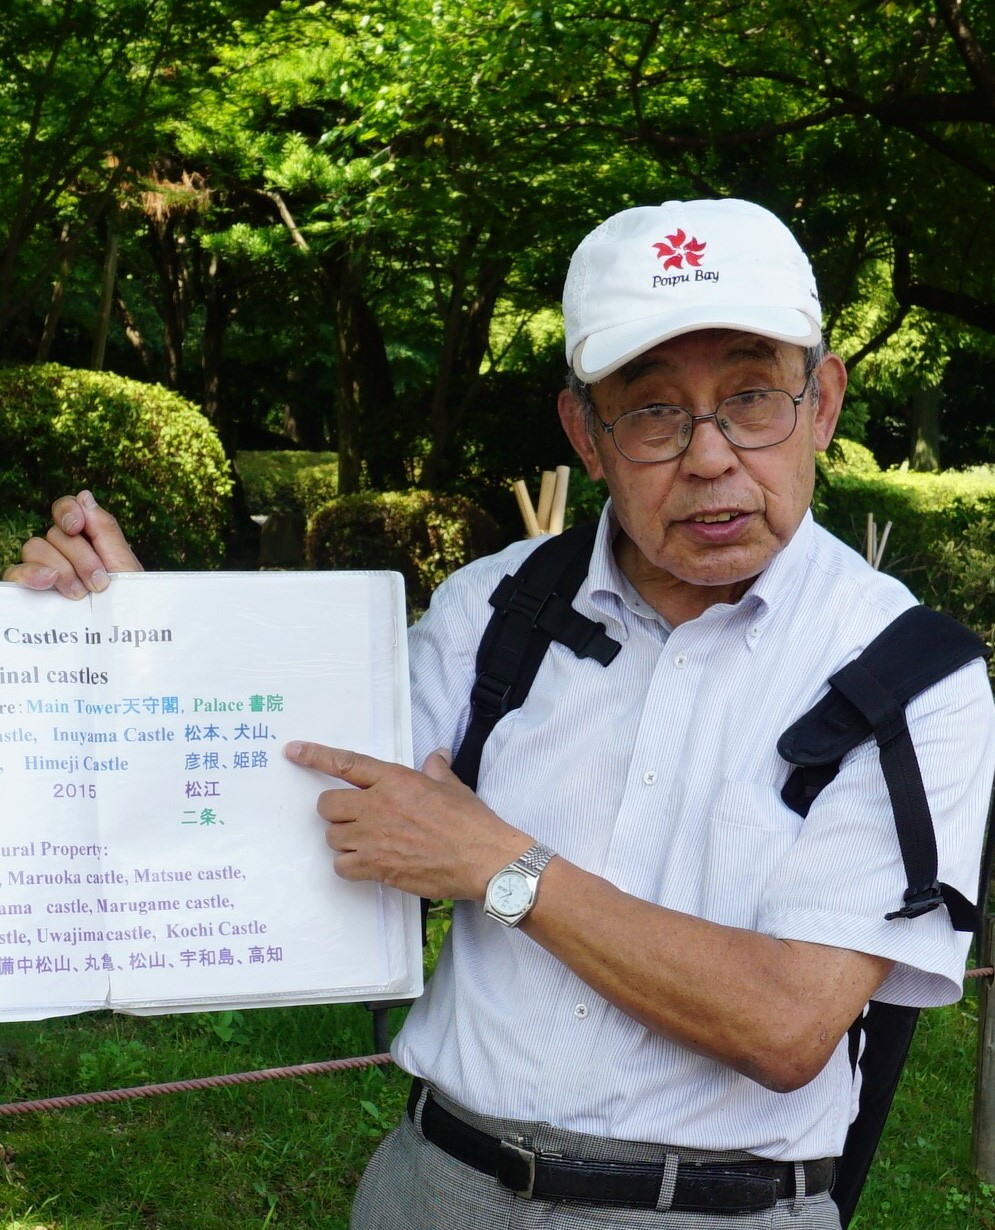 Poipu Bay
Castles in Japan
inal castles
re: Main Tower天守閣, Palace 書院
astle, Inuyama Castle 松本、犬山、
, Himeji Castle 彦根、姫路
2015 松江
二条、
ural Property:
, Maruoka castle, Matsue castle,
ama castle, Marugame castle,
stle, Uwajima castle, Kochi Castle
備中松山、丸亀、松山、宇和島、高知